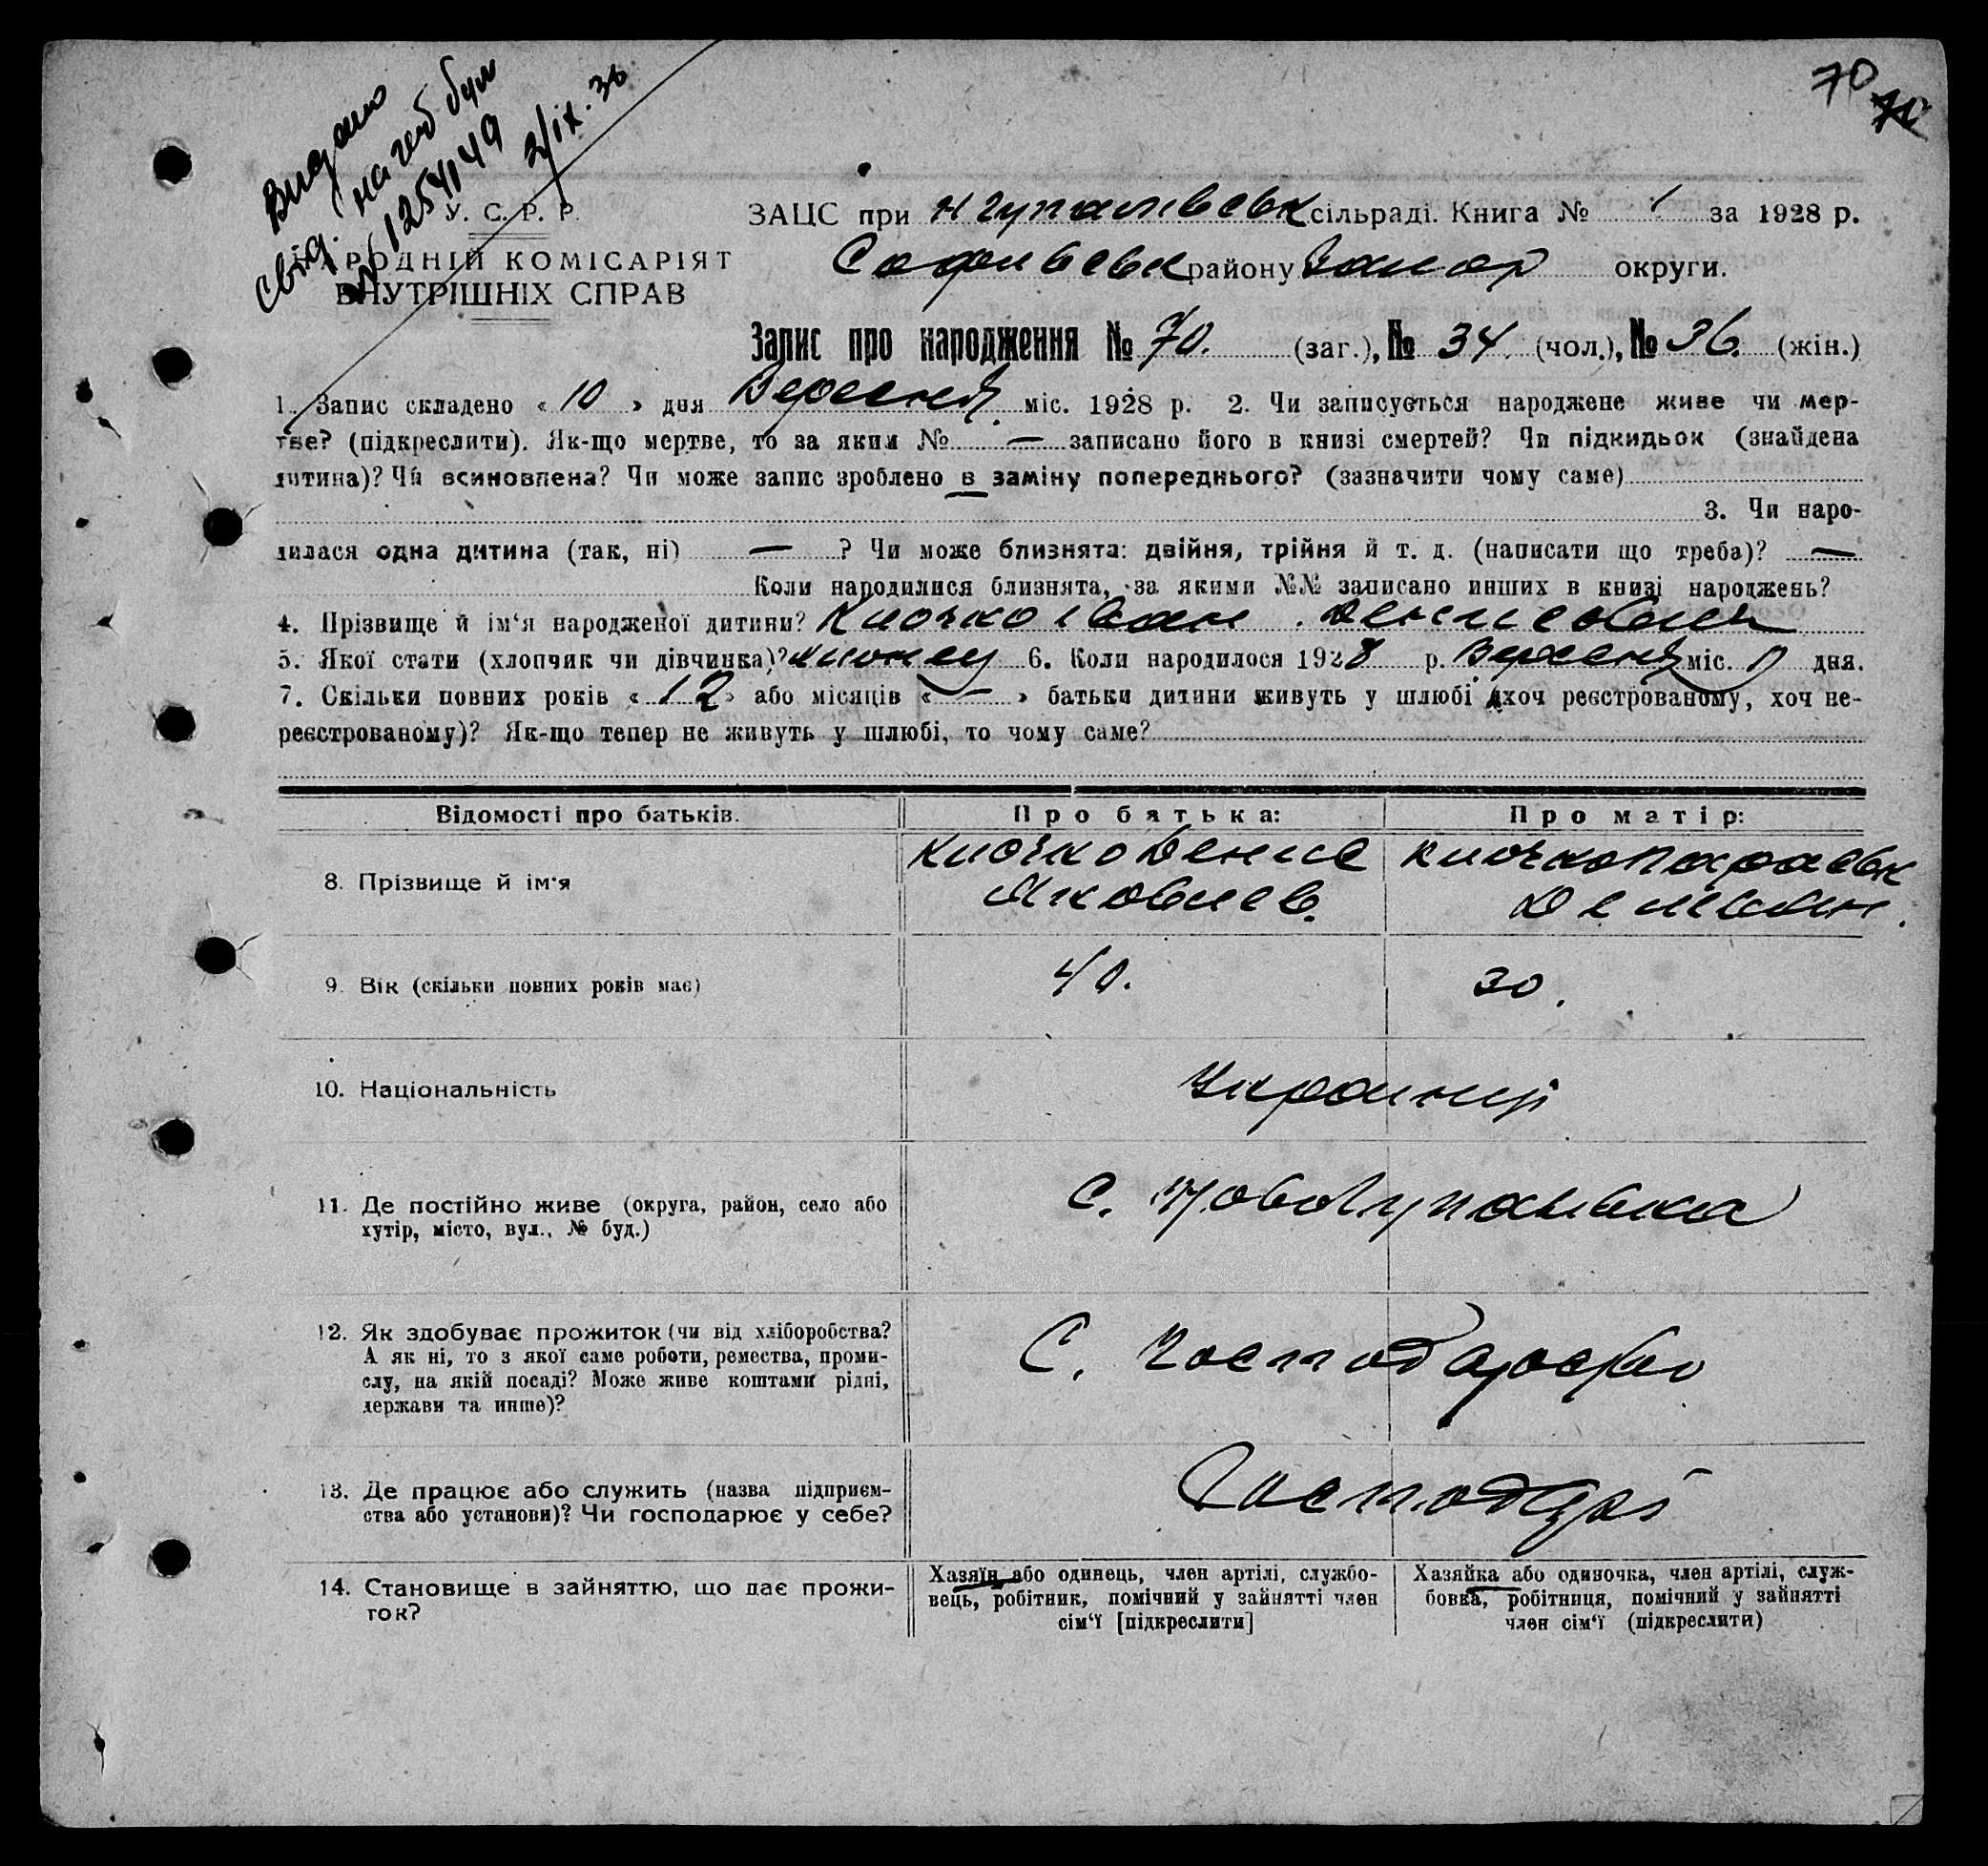 70
Видано
свід.
№ 1254149
2/IX.36
У. С. Р. Р.
РОДНІЙ КОМІСАРІЯТ
ВНУТРІШНІХ СПРАВ
ЗАЦС при Нгупалівськ сільраді. Книга № 1 за 1928 р.
Софиевськ району Запор округи.
Запис про народження № 70. (заг.), № 34. (чол.), № 36. (жін.)
1. Запис складено « 10 » дня Вересня міс. 1928 р. 2. Чи записується народжене живе чи мер-
тве? (підкреслити). Як-що мертве, то за яким № — записано його в книзі смертей? Чи підкидьок (знайдена
дитина)? Чи всиновлена? Чи може запис зроблено в заміну попереднього? (зазначити чому саме)
3. Чи наро-
дилася одна дитина (так, ні) — ? Чи може близнята: двійня, трійня й т. д. (написати що треба)? —
Коли народилися близнята, за якими №№ записано инших в книзі народжень?
4. Прізвище й ім‘я народженої дитини? Клочко Іван Денисович
5. Якої стати (хлопчик чи дівчинка)? 6. Коли народилося 1928 р. Вересня міс. дня.
7. Скільки повних років « 12 » або місяців « — » батьки дитини живуть у шлюбі (хоч реєстрованому, хоч не-
реєстрованому)? Як-що тепер не живуть у шлюбі, то чому саме?
Відомості про батьків.
Про батька:
Про матір:
8. Прізвище й ім‘я
Клочко Денис
Яковлев.
Клочко Параськ
Демян.
9. Вік (скільки повних років має)
40.
30.
10. Національність
Украинці
11. Де постійно живе (округа, район, село або
хутір, місто, вул., № буд.)
с. Новогупалівка
12. Як здобуває прожиток (чи від хліборобства?
А як ні, то з якої саме роботи, ремества, проми-
слу, на якій посаді? Може живе коштами рідні,
держави та инше)?
С. Господарство
13. Де працює або служить (назва підприєм-
ства або установи)? Чи господарює у себе?
Господарі
14. Становище в зайняттю, що дає прожи-
ток?
Хазяїн або одинець, член артілі, службо-
вець, робітник, помічний у зайнятті член
сім‘ї [підкреслити]
Хазяйка або одиночка, член артілі, служ-
бовка, робітниця, помічний у зайнятті
член сім‘ї (підкреслити)